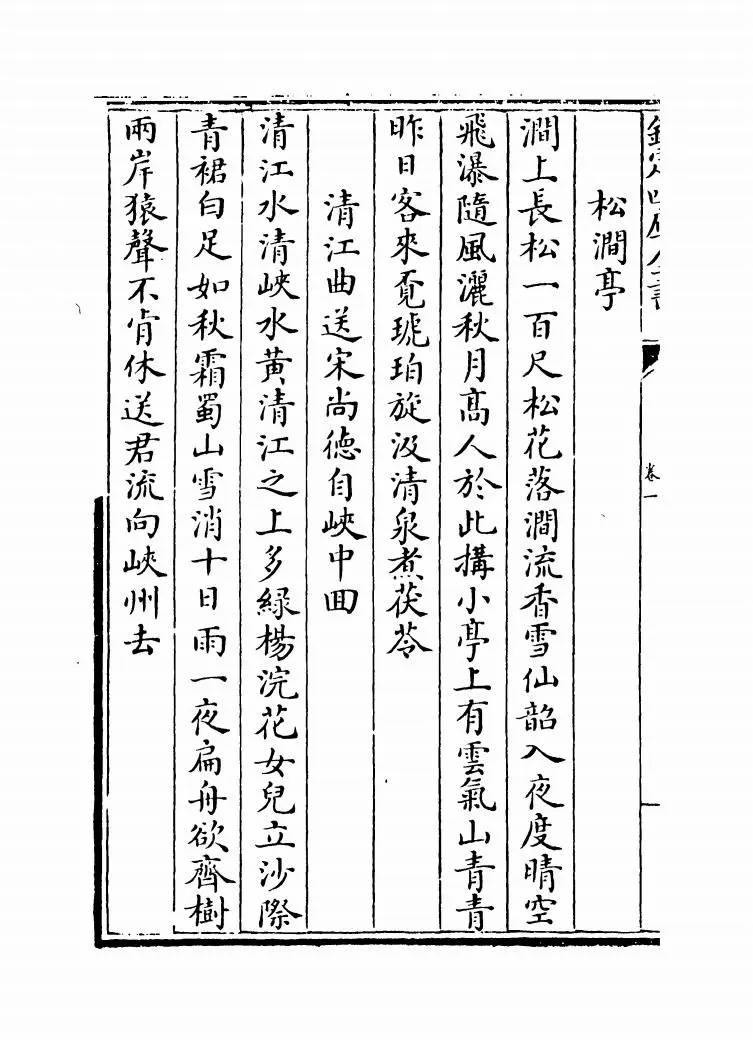 欽定四庫全書
卷一
松澗亭
澗上長松一百尺松花落澗流香雪仙韶入夜度晴空
飛瀑隨風灑秋月髙人於此搆小亭上有雲氣山青青
昨日客來覔琥珀旋汲清泉煮茯苓
清江曲送宋尚德自峽中囬
清江水清峽水黄清江之上多綠楊浣花女兒立沙際
青裙白足如秋霜蜀山雪消十日雨一夜扁舟欲齊樹
兩岸猿聲不肯休送君流向峽州去